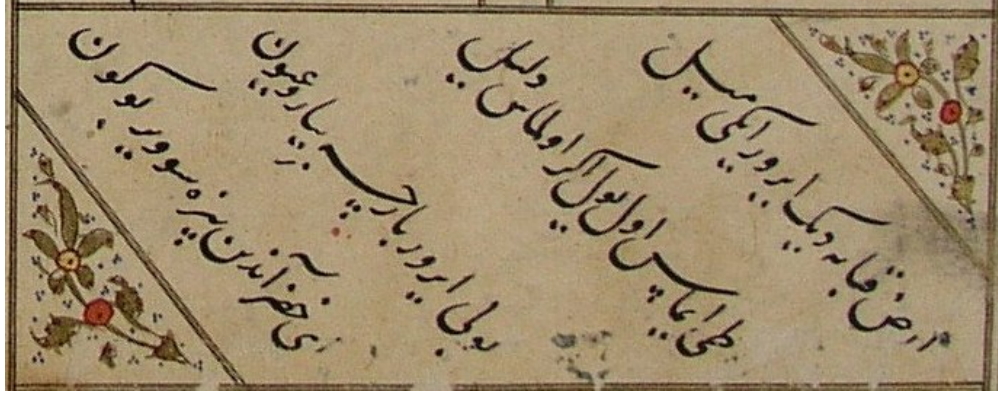 ارض قبا به دیک ایرور ایکی میل
طی ایماس اول یول اگر اولماس دلیل
یولی ایرور بارچه بیار و عیون
ای خضر آندن بیزه سو ویر بوکون